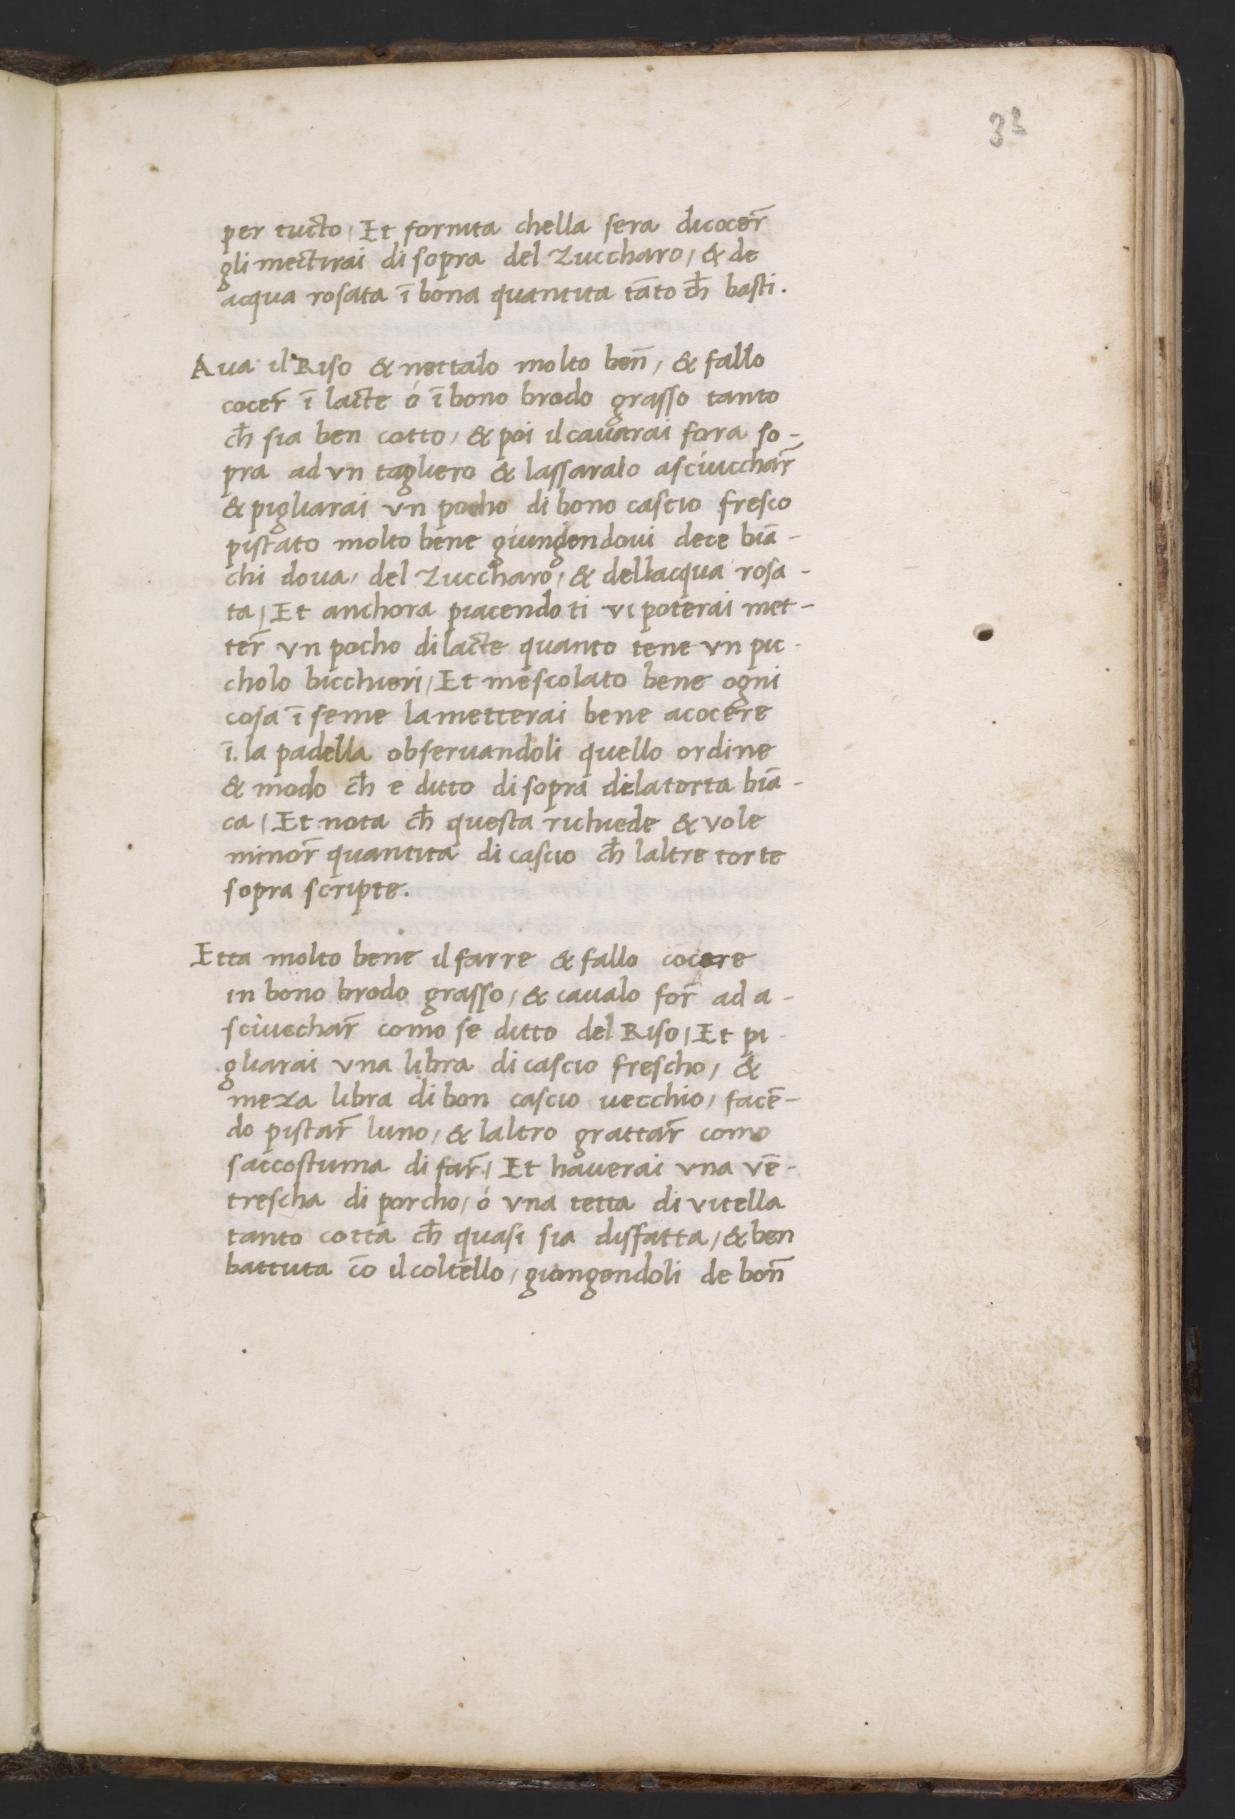 33
per tucto / Et fornita chella sera dicocer̄
gli mectirai di sopra del Zuccharo / & de
acqua rosata ī bona quantita tāto ch̄ basti.
Aua il Riso & nettalo molto ben̄ / & fallo
cocer̄ ī lacte ó ī bono brodo grasso tanto
ch̄ sia ben cotto / & poi il cauarai fora so-
pra ad vn tagliero & lassaralo asciucchar̄
& pigliarai vn pocho di bono cascio fresco
pistato molto bene giungendoui dece biā-
chi doua / del Zuccharo / & dellacqua rosa-
ta / Et anchora piacendo ti vi poterai met-
ter̄ vn pocho di lacte quanto tene vn pic-
cholo bicchieri / Et mescolato bene ogni
cosa ī seme la metterai bene acocere
ī. la padella obseruandoli quello ordine
& modo ch̄ e ditto di sopra dela torta biā-
ca / Et nota ch̄ questa richiede & vole
minor̄ quantita di cascio ch̄ laltre torte
sopra scripte.
Etta molto bene il farre & fallo cocere
in bono brodo grasso / & caualo for̄ ad a-
sciuechar̄ como se ditto del Riso / Et pi-
gliarai vna libra di cascio frescho / &
meza libra di bon cascio uecchio / facē-
do pistar̄ luno / & laltro grattar̄ como
saccostuma di far̄ / Et hauerai vna vē-
trescha di porcho / ó vna tetta di vitella
tanto cotta ch̄ quasi sia disfatta / & ben
battuta cō il coltello / giongendoli de bon̄